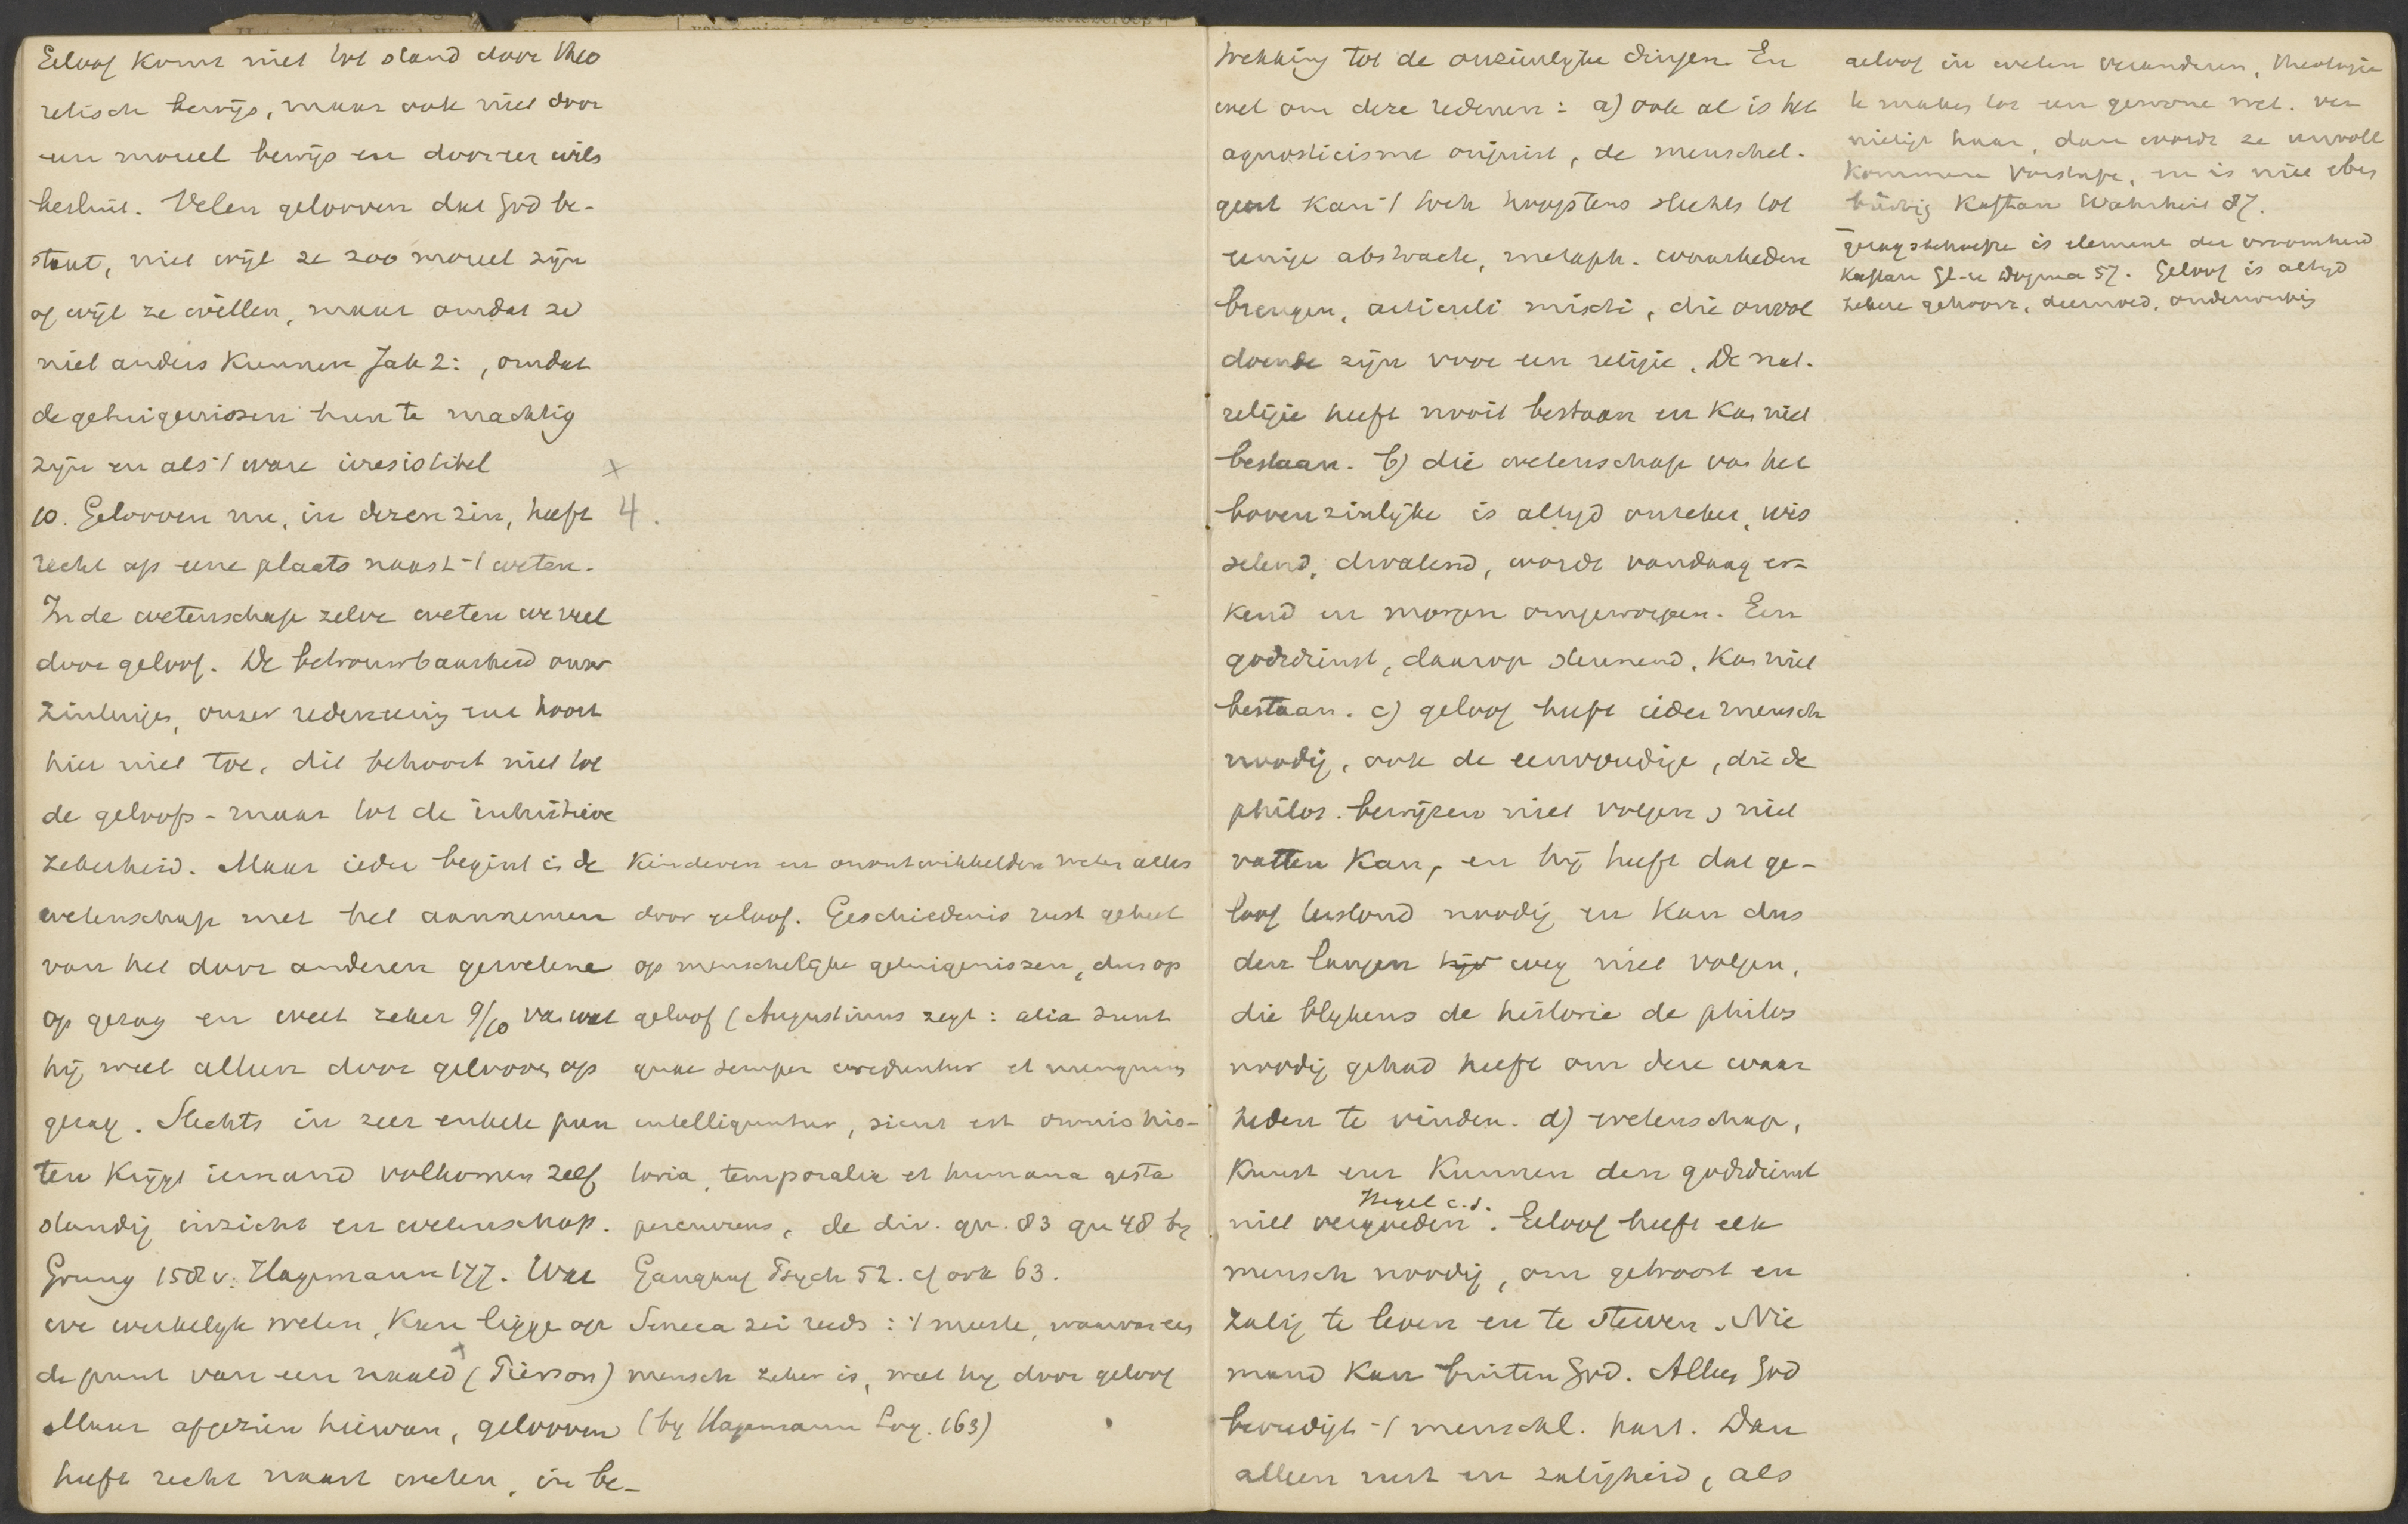 Geloof komt niet tot stand door theo
retisch bewijs, maar ook niet door
een moreel bewijs en door een wils
besluit. Velen gelooven dat God be-
staat, niet wijl ze zoo moreel zijn
of wijl ze willen, maar omdat ze
niet anders kunnen Jak 2: , omdat
de getuigenissen hun te machtig
zijn en als 't ware irresistibel
10. Gelooven nu, in dezen zin, heeft
recht op eene plaats naast 't weten.
In de wetenschap zelve weten we veel
door geloof. De betrouwbaarheid onzer
zintuigen, onzer redeneering enz hoort
hier niet toe, dit behoort niet tot
de geloofs- maar tot de intuitieve
zekerheid. Maar ieder begint in de
wetenschap met het aannemen
van het door anderen gewetene
op gezag en weet zeker 9/10 van wat
hij weet alleen door geloof, op
gezag. Slechts in zeer enkele pun
ten krijgt iemand volkomen zelf
standig inzicht en wetenschap.
Grung 158 v. Hagemann 177. Wat
we werkelijk weten, kan liggen op
de punt van een naald (Pierson)
Maar afgezien hiervan, gelooven
heeft recht naast weten, in be-
x
4.
Kinderen en onontwikkelden weten alles
door geloof. Geschiedenis rust geheel
op menschelijke getuigenissen, dus op
geloof (Augustinus zegt: alia sunt
quae semper creduntur et nunquam
intelliguntur, sicut est omnis his-
toria, temporalia et humana gesta
percurrens, de div. qu. 83 qu 48 bij
Gangauf Psych 52. cf ook 63.
Seneca zei reeds: 't meeste, waarvan een
mensch zeker is, weet hij door geloof
(bij Hagemann Log. 163)
trekking tot de onzienlijke dingen. En
wel om deze redenen: a) ook al is het
agnosticisme onjuist, de menschel.
geest kan 't toch hoogstens slechts tot
eenige abstracte, metaph. waarheden
brengen, articuli mixti, die onvol
doende zijn voor een religie. De nat.
religie heeft nooit bestaan en kan niet
bestaan. b) die wetenschap van het
bovenzinlijke is altijd onzeker, wis
selend, dwalend, wordt vandaag er-
kend en morgen omgeworpen. Een
godsdienst, daarop steunend, kan niet
bestaan. c) geloof heeft ieder mensch
noodig, ook de eenvoudige, die de
philos. bewijzen niet volgen, niet
vatten kan, en hij heeft dat ge-
loof terstond noodig en kan dus
den langen weg niet volgen,
die blijkens de historie de philos
noodig gehad heeft om deze waar
heden te vinden. d) wetenschap,
kunst enz kunnen den godsdienst
Hegel c.s.
niet vergoeden. Geloof heeft elk
mensch noodig, om getroost en
zalig te leven en te sterven. Nie
mand kan buiten God. Alleen God
bevredigt 't menschl. hart. Dan
alleen rust en zaligheid, als
geloof in weten veranderen, theologie
te maken tot een gewone wet. ver
nietigt haar, dan wordt ze onvoll
kommene Vorstufe, en is niet eben
bürtig Kaftan Wahrheit 87.
gezagsbehoefte is element der vroomheid
Kaftan Gl. u Dogma 57. Geloof is altijd
zekere gehoorz. deemoed, onderwerping